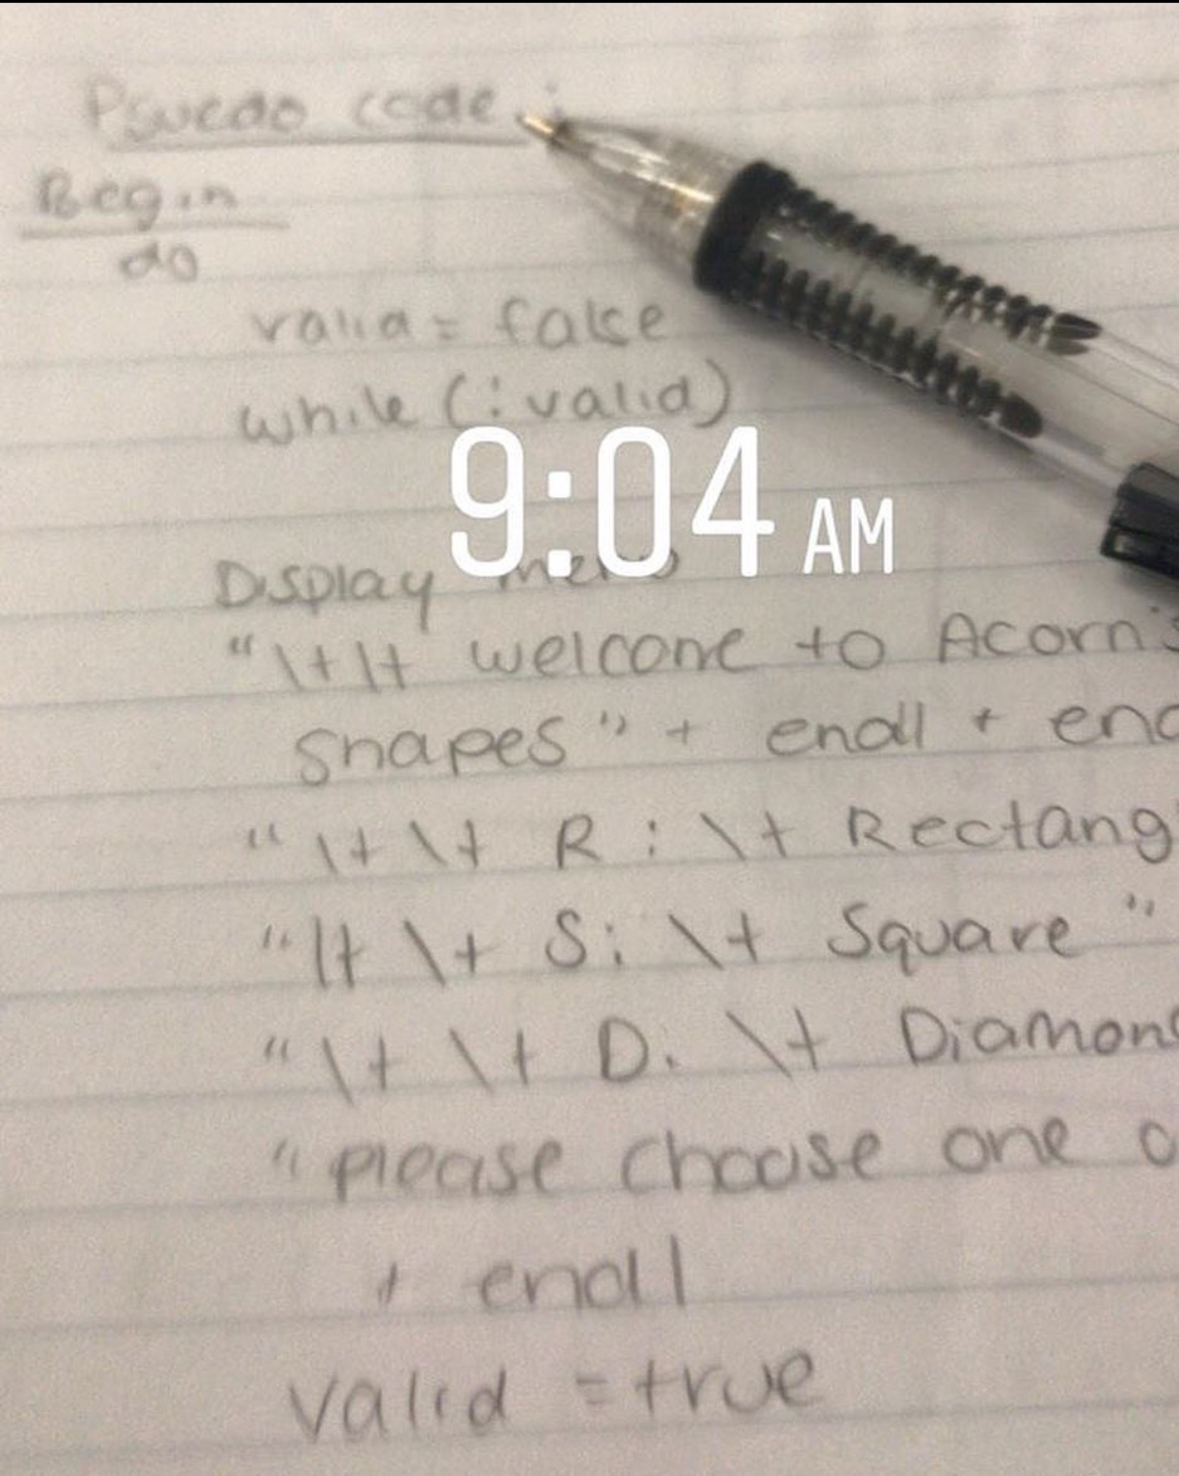 Pswedo code :
Begin
do
valid = false
while (!valid)
9:04 AM
Display menu
"\t\t welcome to Acorn's
shapes" + endl + end
"\t\t R : \t Rectang
"\t \t S: \t Square"
"\t \t D. \t Diamond
"please choose one o
+ endl
valid = true